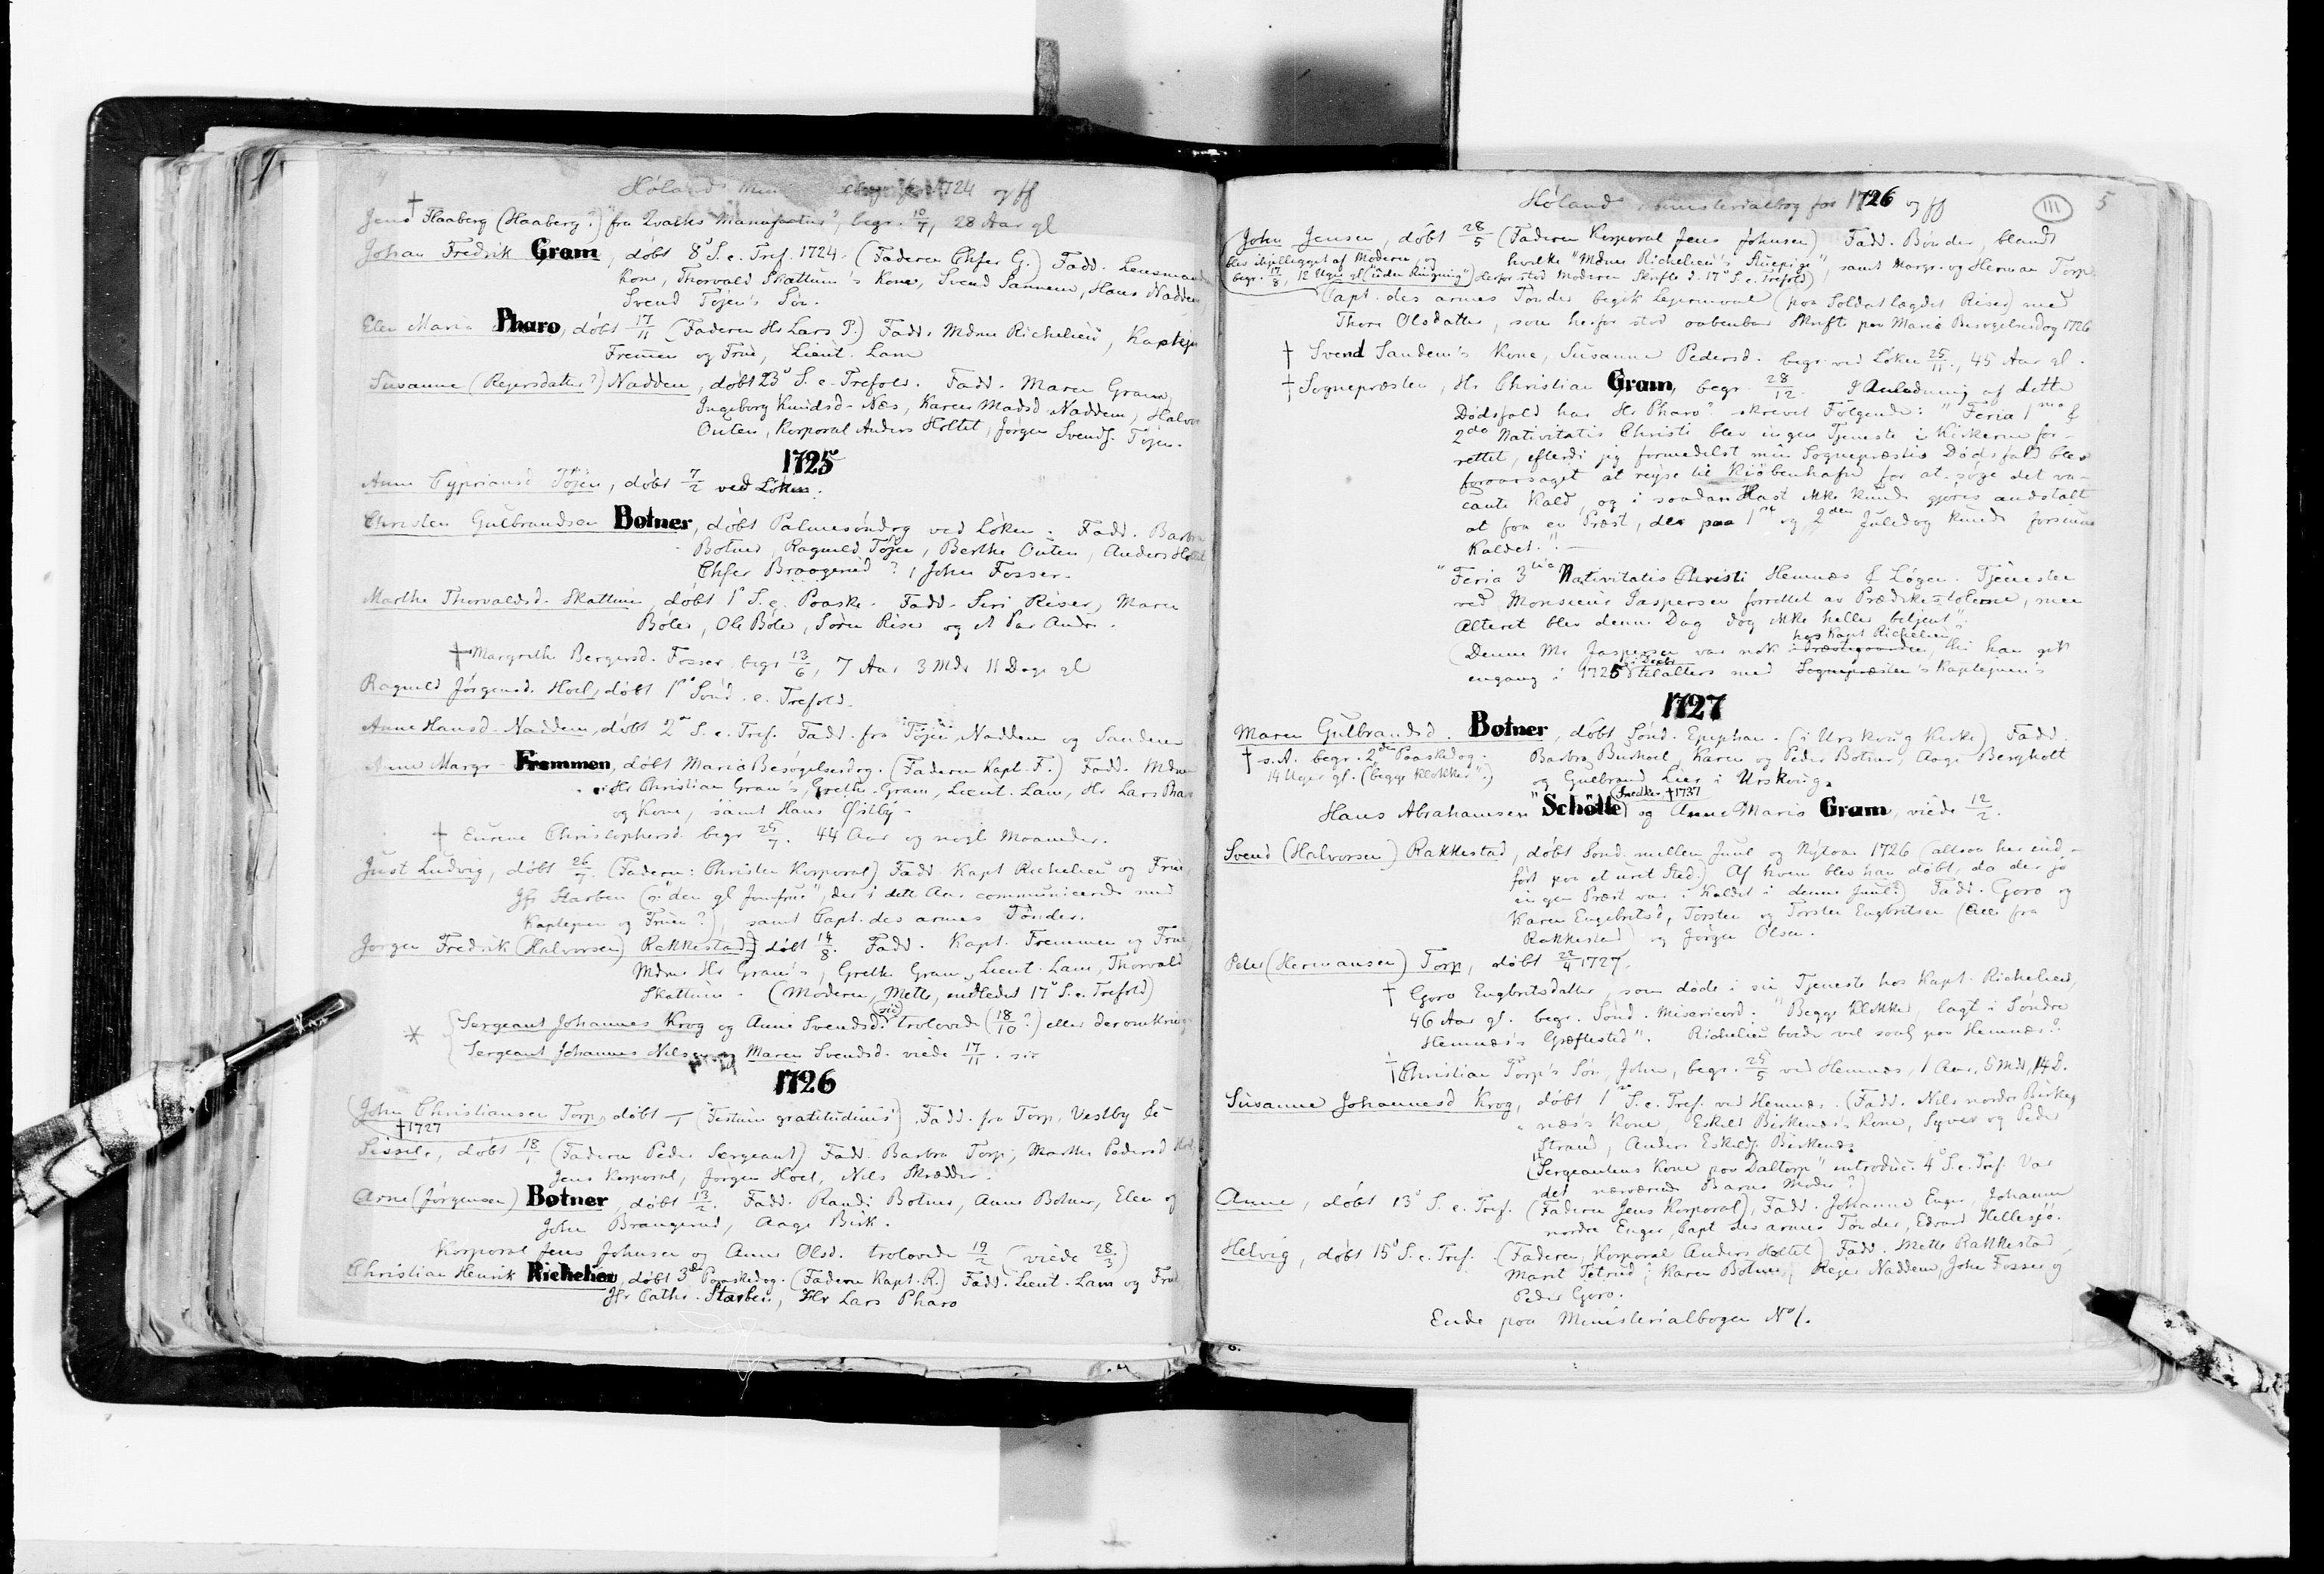 4
Hølands min 1724 og ff
† Jens Haaberg (Haaberg?) "fra Qvalks Manufactur", begr. 10/7, 28 Aar gl
Johan Fredrik Gram, døbt 8de S. e. Tref. 1724. (Faderen Chfer G.) Fadd. Lensmand
Kone, Thorvald Skattum's Kone, Svend Sannem, Hans Nadden
Svend Tøjen's Søn.
Elen Maria Pharo, døbt 17/11 (Faderen Hr Lars P.) Fadd. Mdme Richelieu, Kaptejn
Fremen og Frue, Lieut. Lam
Susanne (Rejersdatter?) Nadden, døbt 23de S. e. Trefold. Fadd. Maren Gram,
Ingeborg Knudsd. Næs, Karen Madsd. Naddem, Halvor
Outen, Korporal Anders Holtet, Jørgen Svends. Tøjen.
1725
Anne Cypriansd Tøjen, døbt 7/2 ved Løken.
Christen Gulbrandsen Botner, døbt Palmesøndag ved Løken. Fadd. Barbra
Botner, Ragnild Tøjen, Berthe Outen, Anders Holtet
Chfer Braagerud?, John Fosser.
Marthe Thorvaldsd. Skattum, døbt 1ste S. e. Paaske. Fadd. Siri Riser, Maren
Bøler, Ole Bøler, Søren Riser og et Par Andre.
† Margrethe Bergersd. Fosser, begr 13/6, 7 Aar 3 Mdr 11 Dage gl
Ragnild Jørgensd. Hoel, døbt 1ste Sønd. e. Trefold.
Anne Hansd. Naddem, døbt 2den S. e. Tref. Fadd. fra Tøjen, Naddem og Sandem
Anne Margr. Fremmen, døbt Maria Besøgelsesdag. (Faderen Kapt. F.) Fadd. Mdme
Hr Christian Gram's, Grethe Gram, Lieut. Lam, Hr Lars Pharo
og Kone, samt Hans Østby.
† Eurene Christophersd. begr 25/7. 44 Aar og nogle Maaneder.
Just Ludvig, døbt 26/7. (Faderen: Christen Korporal) Fadd. Kapt Richelieu og Frue
Jfr Starben (o: den gl Jomfrue", der i dette Aar communicerede med
Kaptejnen og Fruen?), samt Capt. des armes Tønder.
Jørgen Fredrik (Halvorsen) Rakkestad, døbt 14/8. Fadd. Kapt. Fremmen og Frue,
Mdme Hr Gram's, Grethe Gram, Lieut. Lam, Thorvald
Skattum. (Moderen, Mette, indledet 17de S. e. Trefold)
* Sergeant Johannes Krog og Anne Svendsd. (sic) trolovede (18/10?) eller deromkring
Sergeant Johannes Nilsen og Maren Svendsd. viede 17/11. sic
1726
John Christiansen Torp, døbt (Festum gratitudinis) Fadd. fra Torp, Vestby &c
†1727
Sissel, døbt 18/1 (Faderen Peder Sergeant) Fadd. Barbra Torp, Marthe Pedersd Hoel
Jens Korporal, Jørgen Hoel, Nils Skrædder.
Arne (Jørgensen) Botner, døbt 13/2. Fadd. Randi Botner, Anne Botner, Elen og
John Brangerud, Aage Birk.
Korporal Jens Johnsen og Anne Olsd. trolovede 19/2 (viede 28/3)
Christian Henrik Richelieu, døbt 3die Paaskedag. (Faderen Kapt. R.) Fadd. Lieut. Lam og Frue
Jfr Cathr. Starben, Hr Lars Pharo
Høland ministerialbog for 1726 og ff
III 5
John Jensen, døbt 28/5 (Faderen Korporal Jens Johnsen) Fadd. Bønder, blandt
blev ihjellegget af Moderen, og hvilke "Mdme Richelieu's Stuepige", samt Margr. og Herman Torp.
begr. 17/8, 12 Uger gl ("uden Ringning") Herfor stod Moderen Skrifte d. 17de S. e. Trefold)
Capt. des armes Tønder begik Lejermaal (paa Soldatlægdet Riser) med
Thore Olsdatter, som herfor stod aabenbar Skrifte paa Mariæ Besøgelsesdag 1726
† Svend Sandem's Kone, Susanne Pedersd. begr. ved Løken 25/11, 45 Aar gl.
† Sognepræsten, Hr Christian Gram, begr. 28/12. I Anledning af dette
Dødsfald har Hr Pharo? skrevet Følgende: "Feria 1ma &
2da Nativitatis Christi blev ingen Tjeneste i Kirkerne for-
rettet, efterdi jeg formedelst min Sognepræstis Dødsfald blev
foraarsaget at rejse til Kiøbenhafn for at søge det va-
cante Kald, og i saadan Hast ikke kunde gjøres andstalt
at faa en Præst, der paa 1ste og 2den Juledag kunde forsiune
Kaldet." —
"Feria 3tia Nativitatis Christi Hemnæs & Løgen. Tjenesten
ved Monsieur Jaspersen forrettet av Prædikestolene, men
Alteret blev denne Dag dog ikke heller betjent".
(Denne Mr Jaspersen var nok hos Kapt Richelieu i Præstegaarden, thi han gik
engang i 1725 til alters med Sognepræsten's Kaptejnen's
1727
Maren Gulbrandsd. Botner, døbt Sønd. Epiphan. (i Urskoug Kirke) Fadd.
† s. A. begr. 2den Paaskedag. Barbra Burhoel, Karen og Peder Botner, Aage Bergholt
14 Uger gl. (begge Klokker".) og Gulbrand Lier i Urskoug.
Hans Abrahamsen "Schötte (Snedker †1737) og Anne Maria Gram, viede 12/2.
Svend (Halvorsen) Rakkestad, døbt Sønd. mellem Juul og Nytaar 1726 (altsaa her ind-
ført paa et uret Sted.) Af hvem blev han døbt, da der jo
ingen Præst var i Kaldet i denne Juul?) Fadd. Goro og
Karen Engebritsd, Torsten og Torsten Engbritsen (alle fra
Rakkestad) og Jørgen Olsen.
Peder (Hermansen) Torp, døbt 22/4 1727.
† Goro Engbritsdatter, som døde i sin Tjeneste hos Kapt. Richelieu,
46 Aar gl. begr. Sønd. Misericord. "Begge Klokker, lagt i Søndre
Hemnæs's Græftested". Richelieu boede vel saal. paa Hemnæs?
† Christian Torp's Søn, John, begr. 25/5 ved Hemnæs, 1 Aar, 5 Mdr, 14 D.
Susanne Johannesd Krog, døbt 1ste S. e. Tref. ved Hemnæs. (Fadd. Nils nordre Birke-
næs's Kone, Eskild Birkenæs's Kone, Syver og Peder
Strand, Anders Eskilds. Birkenæs
("Sergeantens Kone paa Daltorp" introduc. 4de S. e. Tref. Var
det nærværende Barns Moder?)
Anne, døbt 13de S. e. Tref. (Faderen Jens Korporal), Fadd. Johanne Enger, Johanne
nordre Enger, Capt des armes Tønder, Edvard Hellesjø.
Helvig, døbt 15de S. e. Tref. (Faderen, Korporal Anders Holtet) Fadd. Mette Rakkestad,
Marit Tetrud, Karen Botner, Rejer Naddem, John Fosser og
Peder Goro.
Ende paa Ministerialbogen No 1.